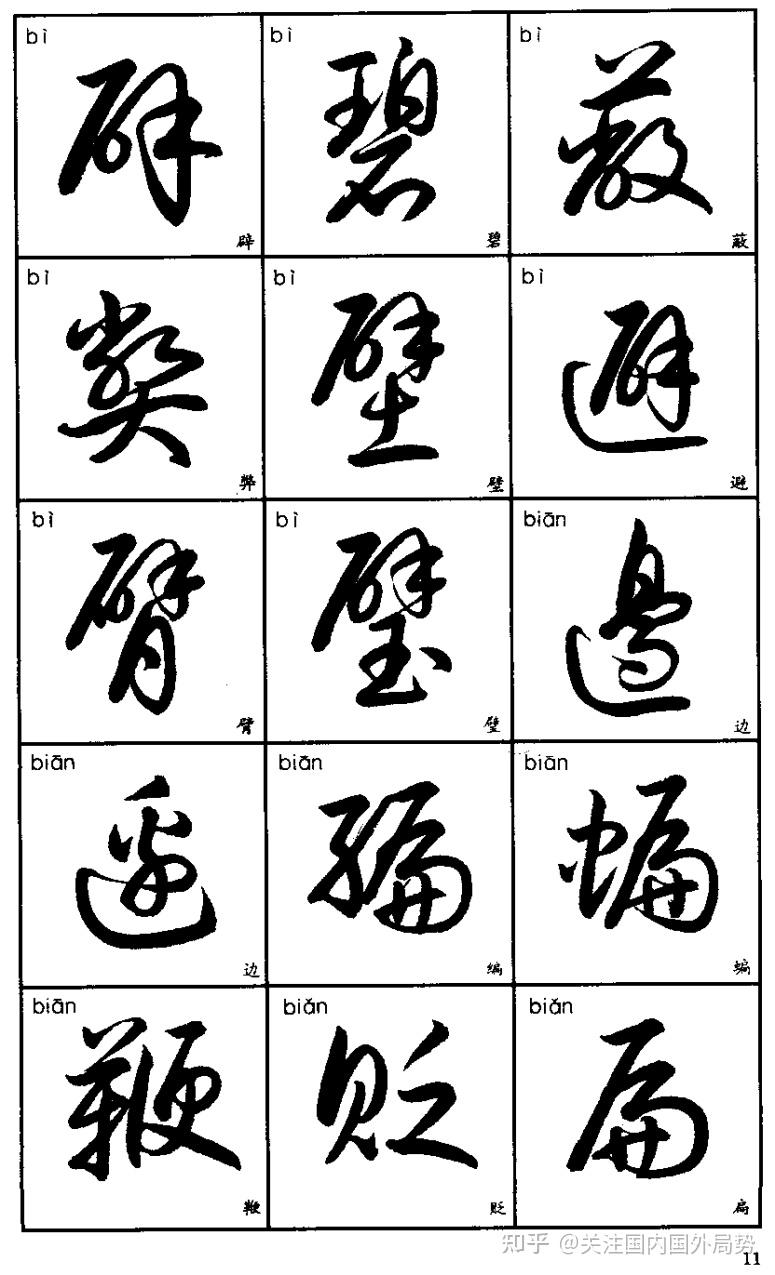 bì
辟
辟
bì
碧
碧
bì
蔽
蔽
bì
弊
弊
bì
壁
壁
bì
避
避
bì
臂
臂
bì
璧
璧
biān
邊
边
biān
邊
边
biān
编
编
biān
蝙
蝙
biān
鞭
鞭
biǎn
贬
贬
biǎn
扁
扁
知乎 @关注国内国外局势
11